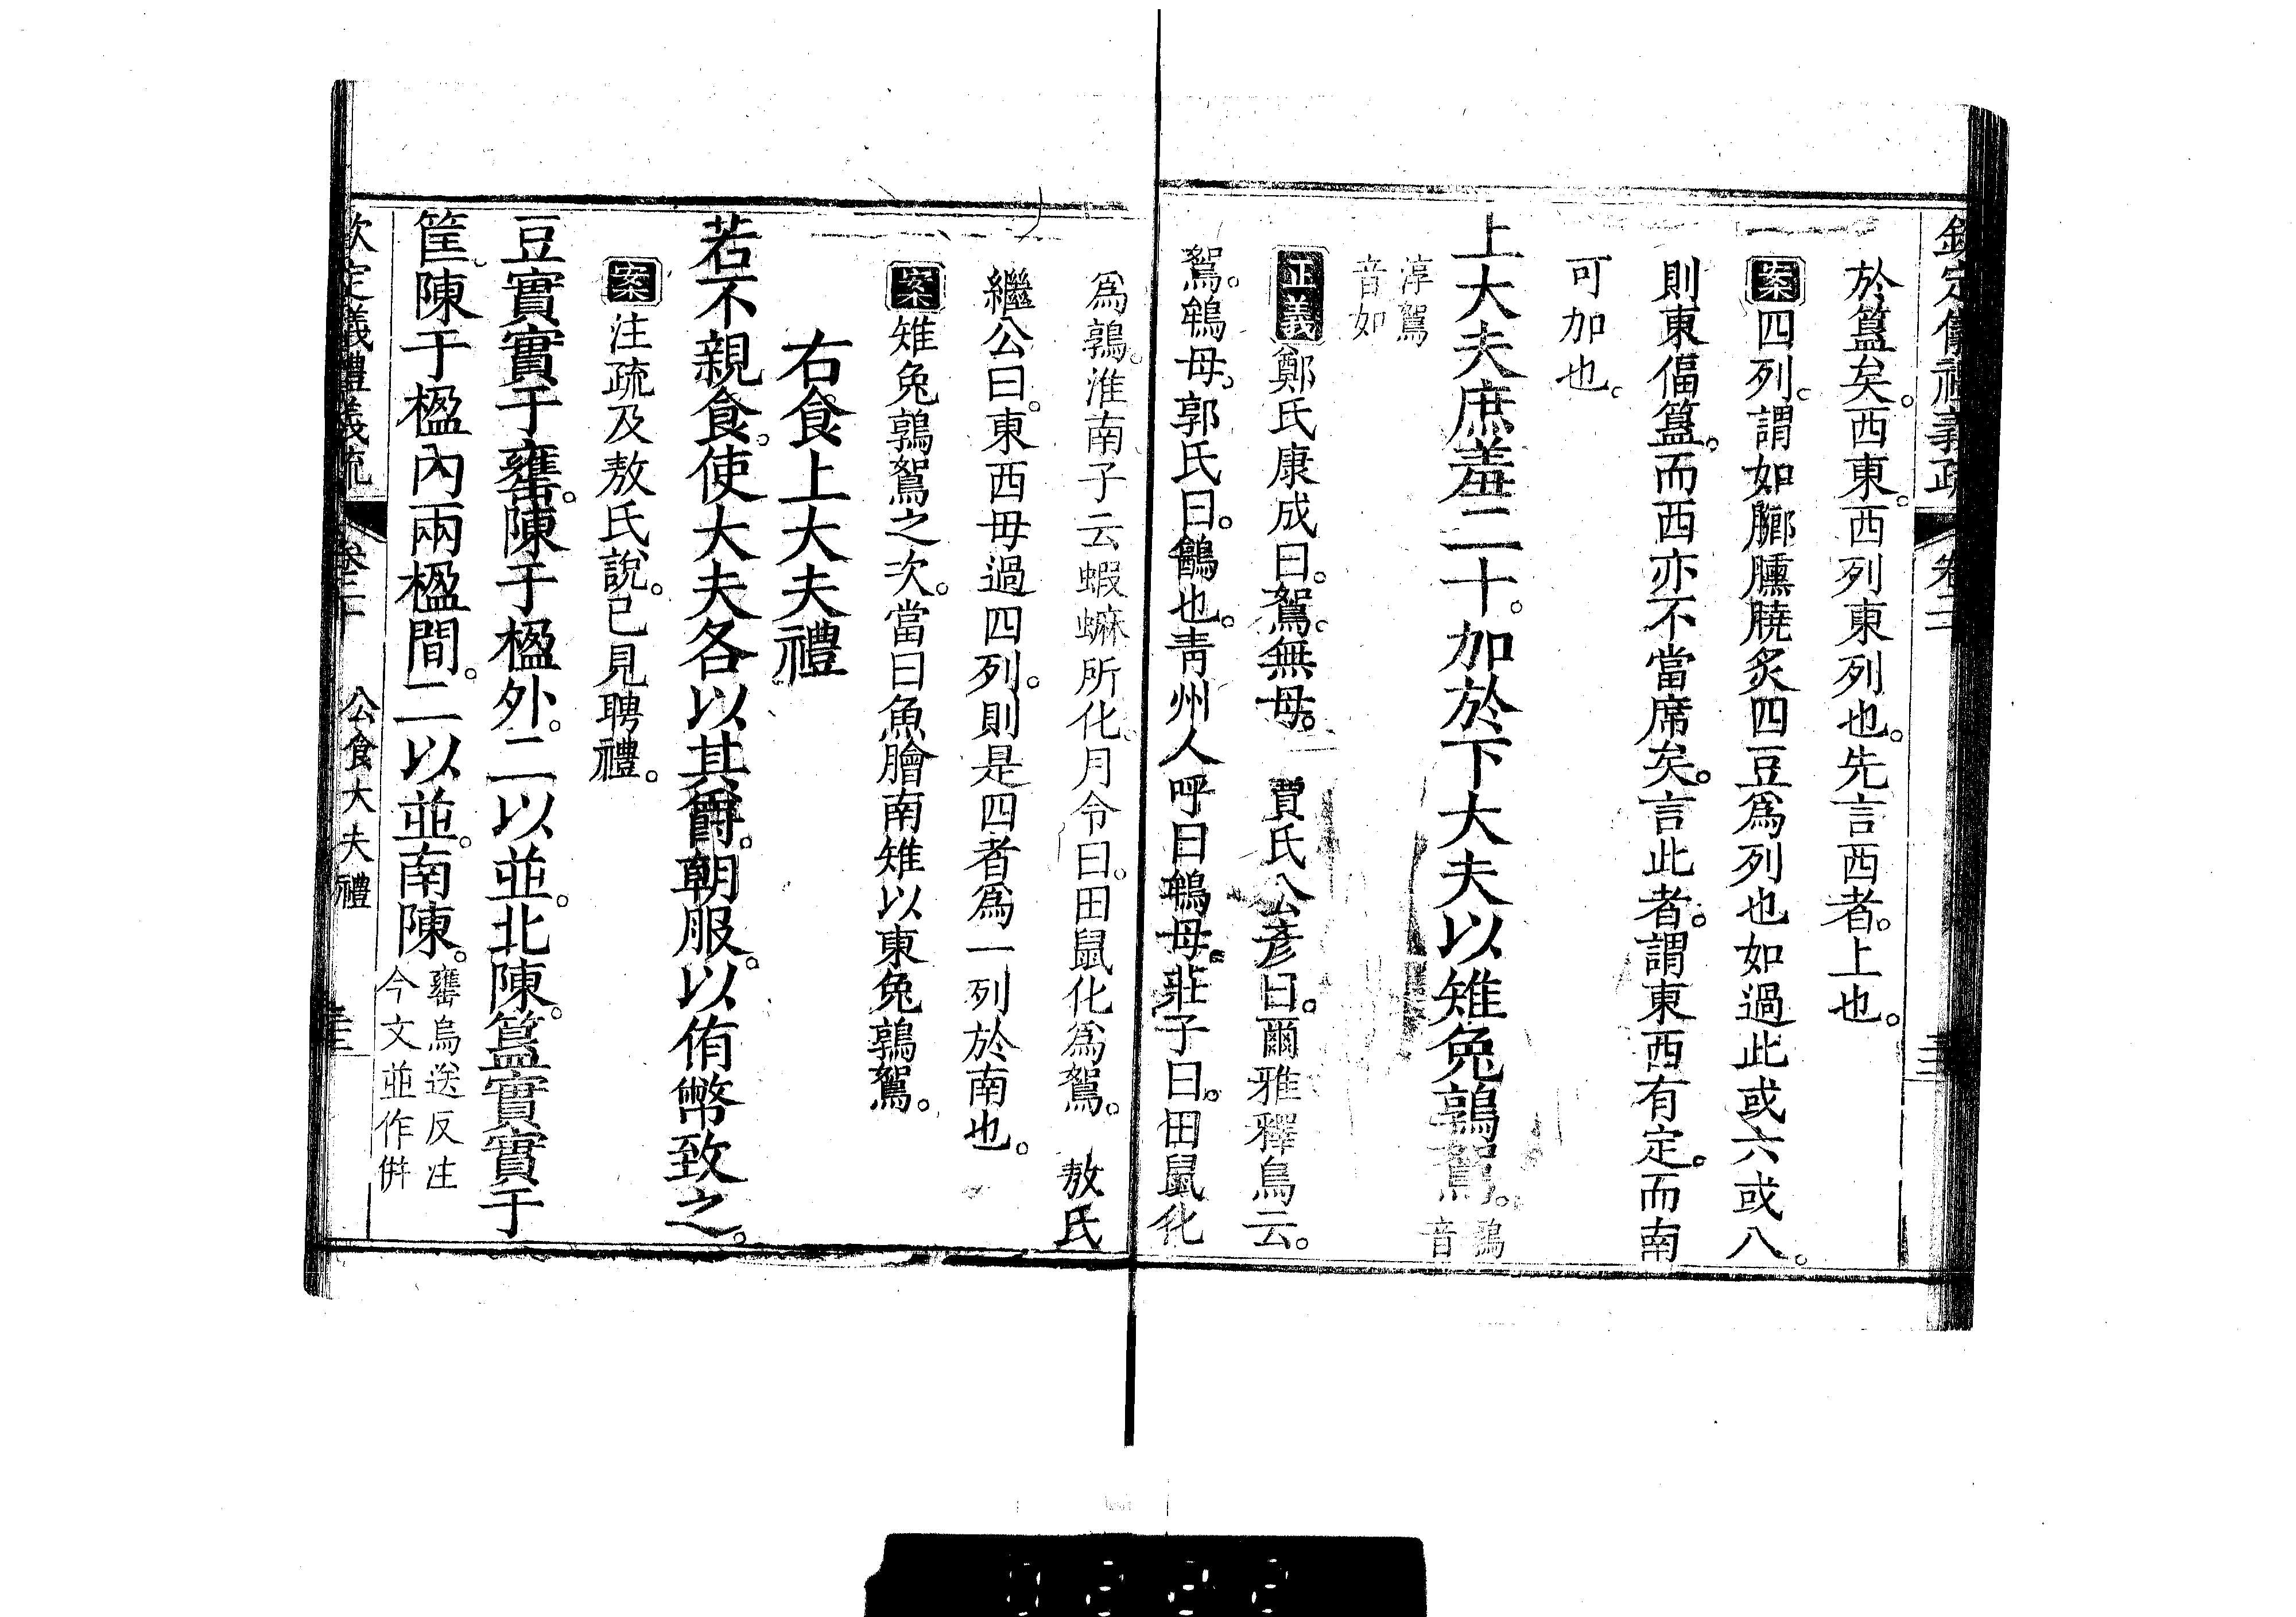 欽定儀禮義疏 卷二
於簋矣。西東。西列東列也。先言西者。上也。
案四列。謂如膷臐膮炙四豆爲列也如過此或六或八。
則東偪簋。而西亦不當席矣。言此者。謂東西有定。而南
可加也。
上大夫庶羞二十。加於下大夫以雉兔鶉鴽。鶉音
淳鴽音如
正義鄭氏康成曰。鴽。無母。 賈氏公彥曰。爾雅釋鳥云。
鴽。鴾母。郭氏曰。䳺也。靑州人呼曰鴾母。莊子曰。田鼠化
爲鶉。淮南子云蝦蟆所化。月令曰。田鼠化爲鴽。 敖氏
繼公曰。東西毋過四列。則是四者爲一列於南也。
案雉兔鶉鴽之次。當曰魚膾南雉以東兔鶉鴽。
右食上大夫禮
若不親食。使大夫各以其爵。朝服。以侑幣致之。
案注疏及敖氏說。已見聘禮。
豆實實于罋。陳于楹外。二以並。北陳。簋實實于
筐。陳于楹內兩楹間。二以並。南陳。罋烏送反注今文並作併
欽定儀禮義疏 公食大夫禮